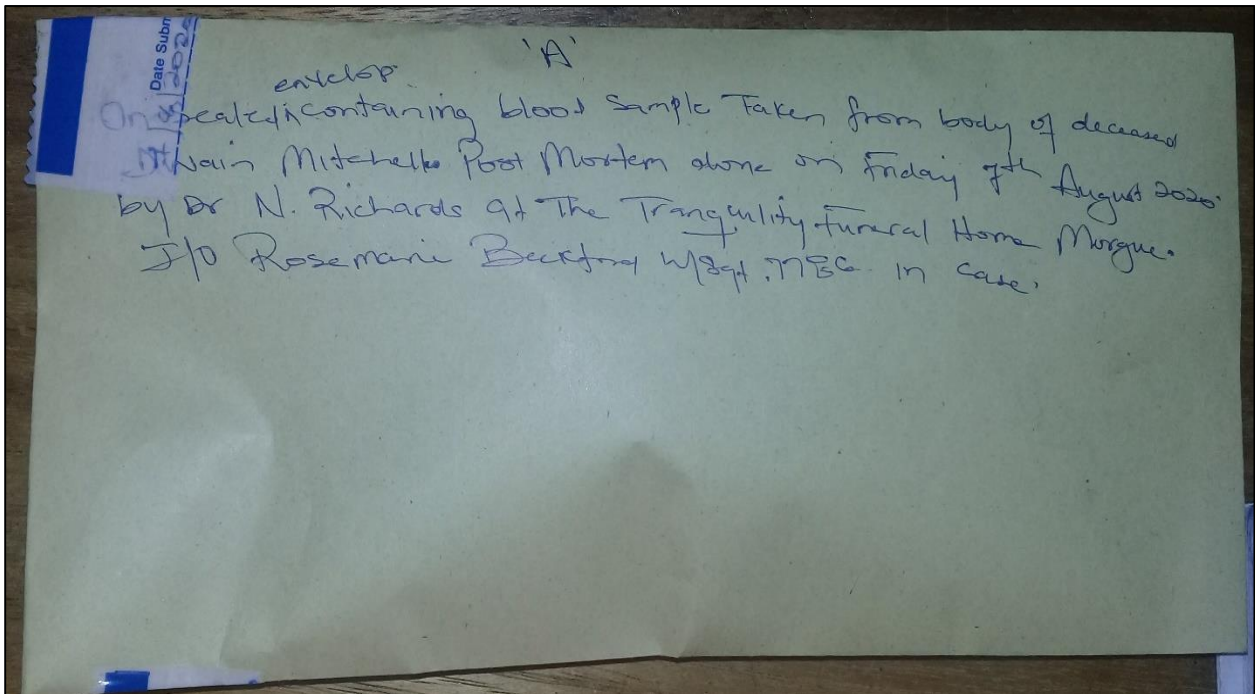 'A'
Date Subm
2020
envelop
On sealed containing blood Sample Taken from body of deceased
Jawain Mitchell Post Mortem done on Friday 7th August 2020
by Dr N. Richards at The Tranquility Funeral Home Morgue.
I/O Rosemarie Beckford W/Sgt. in case.